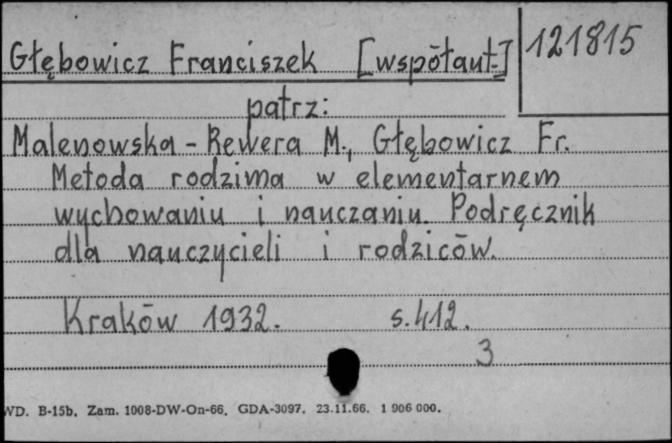 Głębowicz Franciszek [współaut.]
121815
patrz:
Malenowska-Rewera M., Głębowicz Fr.
Metoda rodzima w elementarnem
wychowaniu i nauczaniu. Podręcznik
dla nauczycieli i rodziców.
Kraków 1932. s. 412.
3
WD. B-15b. Zam. 1008-DW-On-66. GDA-3097. 23.11.66. 1 906 000.